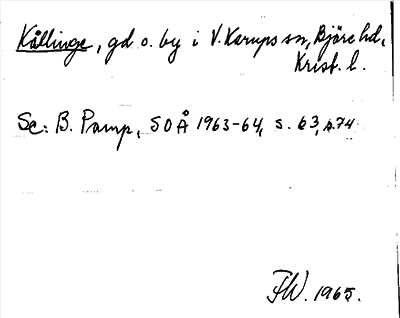 Källinge, gd o. by i V. Karups sn, Bjäre hd,
Krist. l.
Se: B. Pamp, SOÅ 1963-64, s. 63, s. 74
FW. 1965.